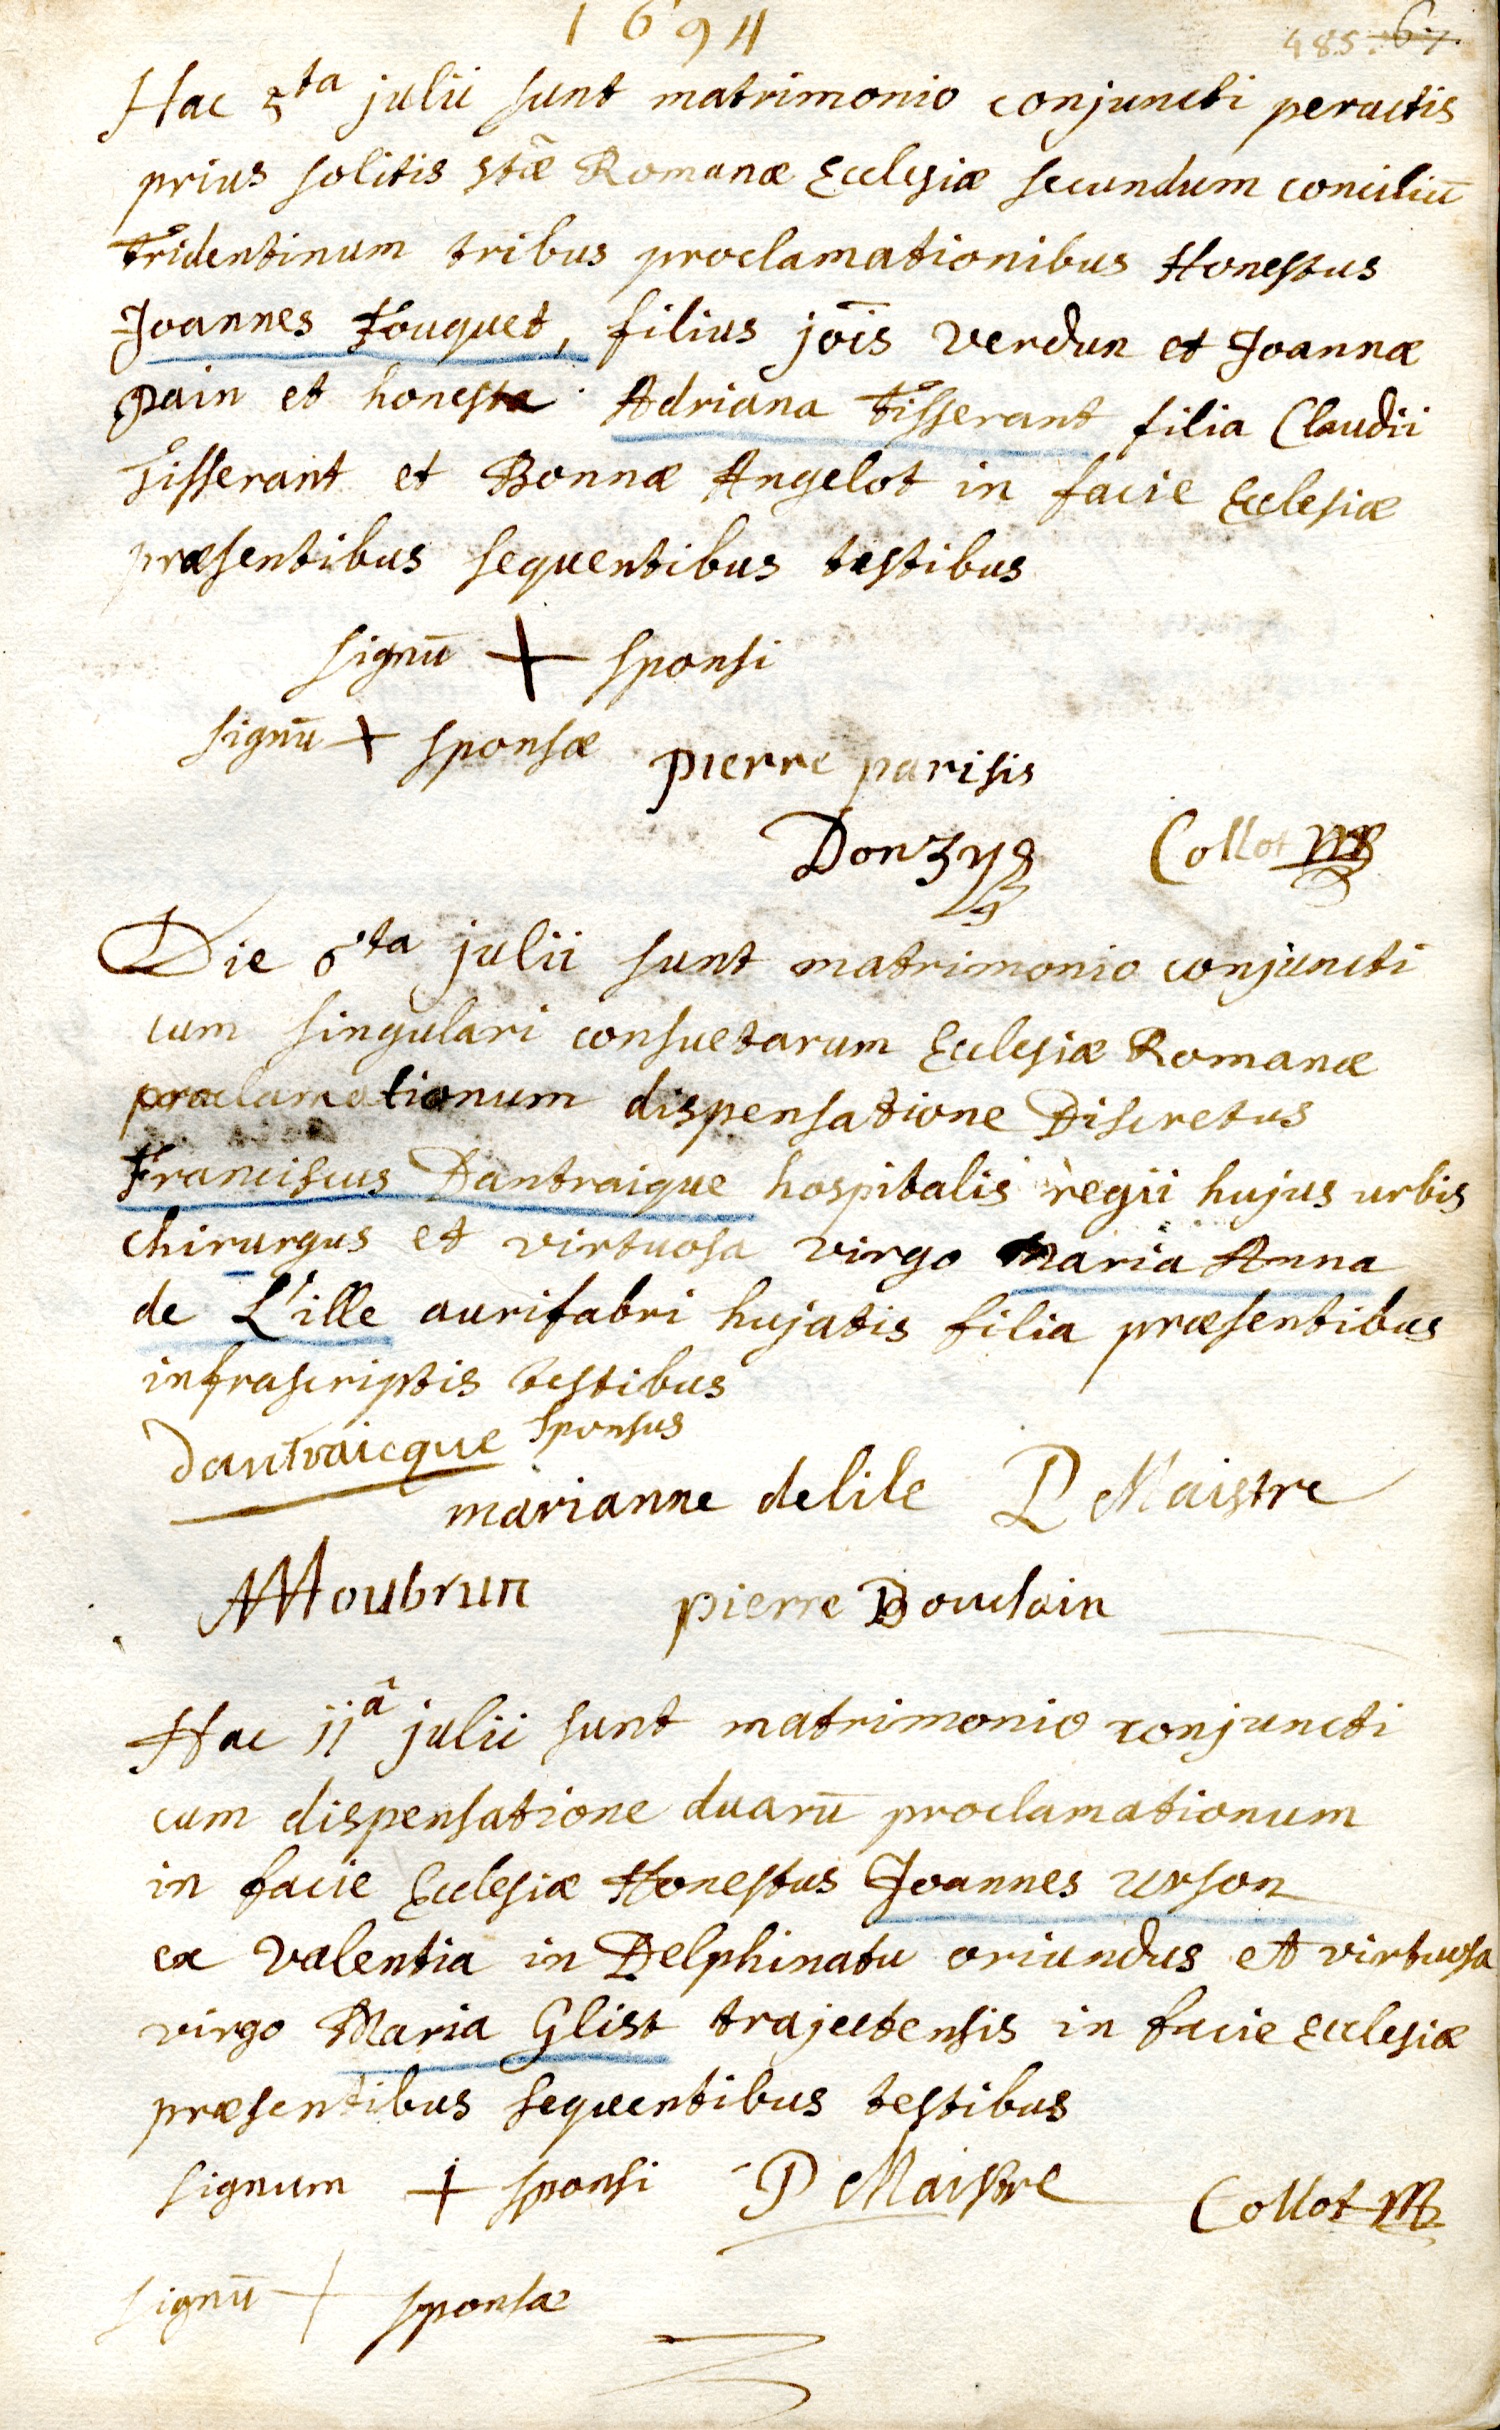 1694
485. 67.
Hac 5ta julii sunt matrimonio conjuncti peractis
prius solitis stæ̃ Romanæ Ecclesiæ secundum conciliũ
Tridentinum tribus proclamationibus Honestus
Joannes Fouquet, filius jõis Verdun et Joannæ
Pain et honesta Adriana Tisserant filia Claudii
Tisserant et Bonnæ Angelot in facie Ecclesiæ
præsentibus sequentibus testibus
signũ + sponsi
signũ + sponsæ pierre parisis
Donzys Collot
Die 6ta julii sunt matrimonio conjuncti
cum singulari consuetarum Ecclesiæ Romanæ
proclamationum dispensatione Discretus
Franciscus Dantraique hospitalis regii hujus urbis
chirurgus et virtuosa virgo Maria Anna
de L'ille aurifabri hujatis filia præsentibus
infrascriptis testibus
Dantraicque sponsus
marianne delile P Maistre
Moubrun pierre Bourlain
Hac 11â julii sunt matrimonio conjuncti
cum dispensatione duarũ proclamationum
in facie Ecclesiæ Honestus Joannes Urson
ex Valentia in Delphinatu oriundus et virtuosa
virgo Maria Glist trajectensis in facie Ecclesiæ
præsentibus sequentibus testibus
signum + sponsi P Maistre Collot
signũ + sponsæ